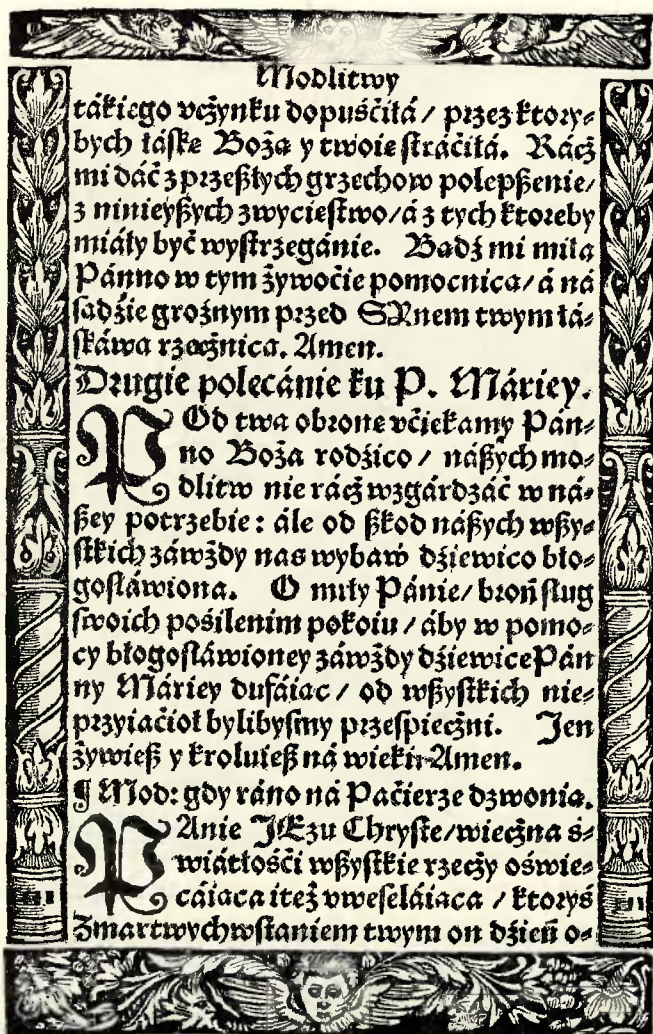 Modlitwy
tákiego vcżynku dopuśćiłá / przez ktory⸗
bych łáſke Bożą y twoie ſtráćiłá. Rácż
mi dáć z przeßłych grzechow polepßenie/
z ninieyßych zwycieſtwo/á z tych ktoreby
miáły być wyſtrzegánie. Badź mi miła
Pánno w tym żywoćie pomocnica/ á ná
ſadźie groźnym przed SYnem twym łá⸗
ſkáwa rzecżnica. Amen.
Drugie polecánie ku P. Máriey.
POd twa obrone vćiekamy Pán⸗
no Boża rodźico / náßych mo⸗
dlitw nie rácż wzgárdzáć w ná⸗
ßey potrzebie: ále od ßkod náßych wßy⸗
ſtkich záwżdy nas wybaw dźiewico bło⸗
goſłáwiona. O miły Pánie/ broń ſług
ſwoich pośilenim pokoiu / áby w pomo⸗
cy błogoſłáwioney záwżdy dźiewice Pán
ny Máriey dufáiac / od wßyſtkich nie⸗
przyiaćioł bylibyſmy przeſpiecżni. Jen
żywieß y kroluieß ná wieki: Amen.
¶ Mod: gdy ráno ná Paćierze dzwonia.
PAnie JEzu Chryſte/wiecżna ś⸗
wiátłośći wßyſtkie rzecży oświe⸗
cáiaca iteż vweſeláiaca / ktoryś
Zmartwychwſtaniem twym on dźień o⸗